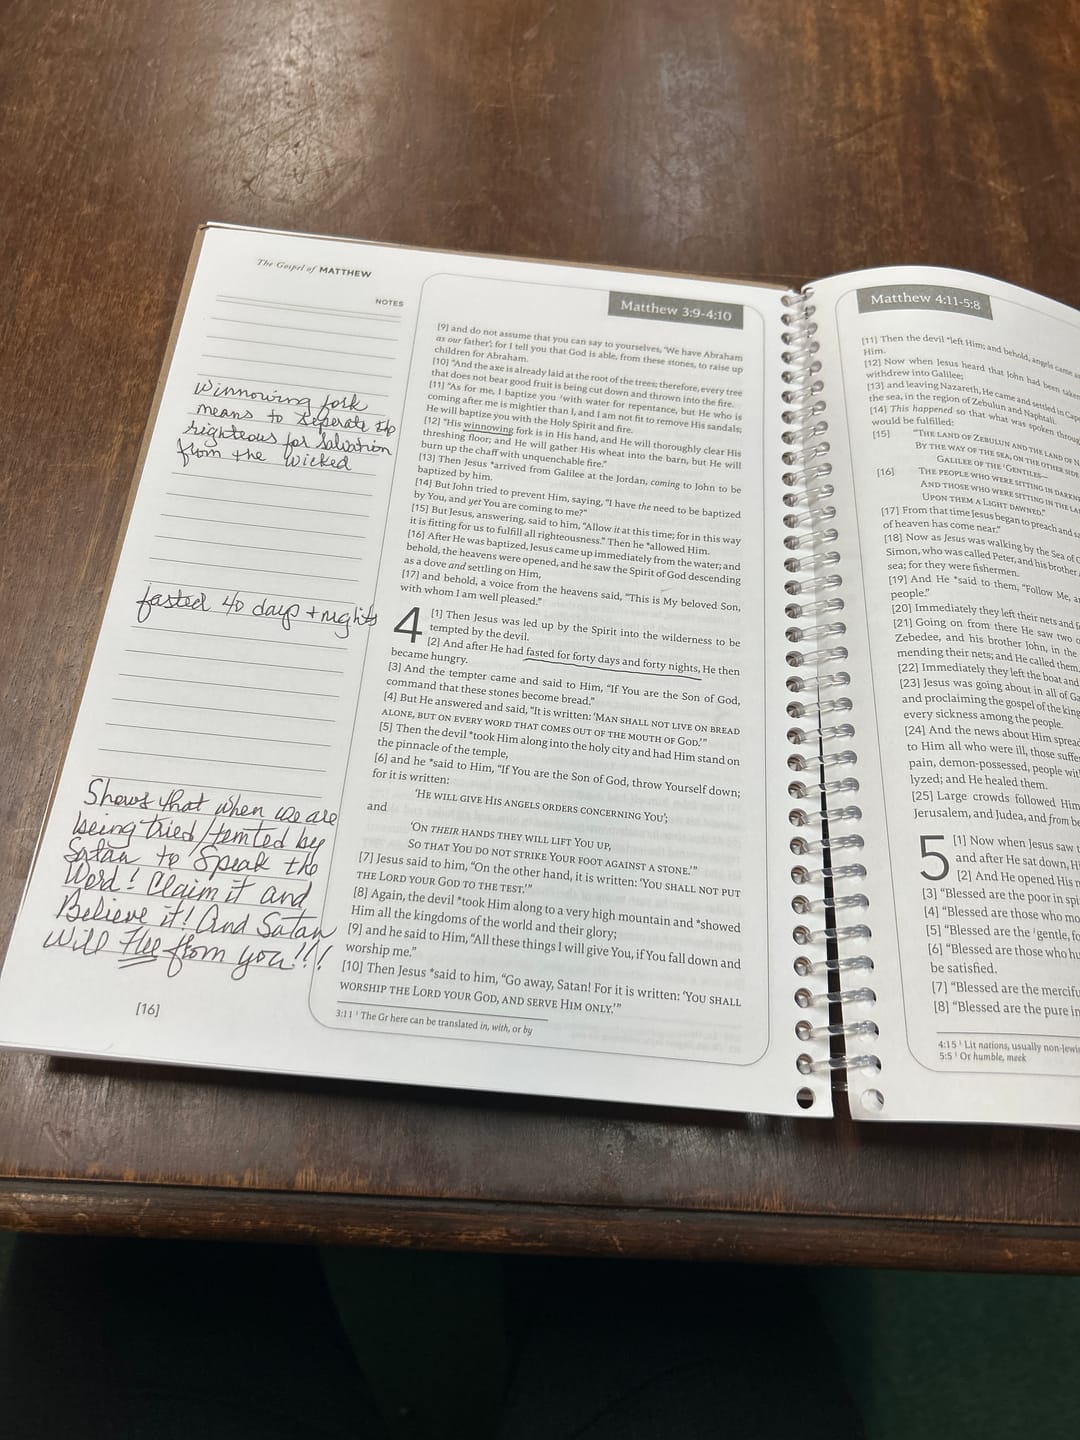 The Gospel of MATTHEW
NOTES
Winnowing fork
means to seperate the
righteous for Salvation
from the wicked
fasted 40 days + nights
Shows that when we are
being tried/temted by
Satan to Speak the
Word! Claim it and
Believe it! And Satan
will Flee from you!!!
[16]
Matthew 3:9-4:10
[9] and do not assume that you can say to yourselves, 'We have Abraham
as our father'; for I tell you that God is able, from these stones, to raise up
children for Abraham.
[10] "And the axe is already laid at the root of the trees; therefore, every tree
that does not bear good fruit is being cut down and thrown into the fire.
[11] "As for me, I baptize you ¹with water for repentance, but He who is
coming after me is mightier than I, and I am not fit to remove His sandals;
He will baptize you with the Holy Spirit and fire.
[12] "His winnowing fork is in His hand, and He will thoroughly clear His
threshing floor; and He will gather His wheat into the barn, but He will
burn up the chaff with unquenchable fire."
[13] Then Jesus *arrived from Galilee at the Jordan, coming to John to be
baptized by him.
[14] But John tried to prevent Him, saying, "I have the need to be baptized
by You, and yet You are coming to me?"
[15] But Jesus, answering, said to him, "Allow it at this time; for in this way
it is fitting for us to fulfill all righteousness." Then he *allowed Him.
[16] After He was baptized, Jesus came up immediately from the water; and
behold, the heavens were opened, and he saw the Spirit of God descending
as a dove and settling on Him,
[17] and behold, a voice from the heavens said, "This is My beloved Son,
with whom I am well pleased."
4 [1] Then Jesus was led up by the Spirit into the wilderness to be
tempted by the devil.
[2] And after He had fasted for forty days and forty nights, He then
became hungry.
[3] And the tempter came and said to Him, "If You are the Son of God,
command that these stones become bread."
[4] But He answered and said, "It is written: 'MAN SHALL NOT LIVE ON BREAD
ALONE, BUT ON EVERY WORD THAT COMES OUT OF THE MOUTH OF GOD.'"
[5] Then the devil *took Him along into the holy city and had Him stand on
the pinnacle of the temple,
[6] and he *said to Him, "If You are the Son of God, throw Yourself down;
for it is written:
'HE WILL GIVE HIS ANGELS ORDERS CONCERNING YOU';
and
'ON THEIR HANDS THEY WILL LIFT YOU UP,
SO THAT YOU DO NOT STRIKE YOUR FOOT AGAINST A STONE.'"
[7] Jesus said to him, "On the other hand, it is written: 'YOU SHALL NOT PUT
THE LORD YOUR GOD TO THE TEST.'"
[8] Again, the devil *took Him along to a very high mountain and *showed
Him all the kingdoms of the world and their glory;
[9] and he said to Him, "All these things I will give You, if You fall down and
worship me."
[10] Then Jesus *said to him, "Go away, Satan! For it is written: 'YOU SHALL
WORSHIP THE LORD YOUR GOD, AND SERVE HIM ONLY.'"
3:11 ¹ The Gr here can be translated in, with, or by
Matthew 4:11-5:8
[11] Then the devil *left Him; and behold, angels came
Him.
[12] Now when Jesus heard that John had been taken
withdrew into Galilee;
[13] and leaving Nazareth, He came and settled in
the sea, in the region of Zebulun and Naphtali.
[14] This happened so that what was spoken
would be fulfilled:
[15] "THE LAND OF ZEBULUN AND THE LAND OF
BY THE WAY OF THE SEA, ON THE OTHER
GALILEE OF THE ¹GENTILES—
[16] THE PEOPLE WHO WERE SITTING IN
AND THOSE WHO WERE SITTING IN THE
UPON THEM A LIGHT DAWNED."
[17] From that time Jesus began to preach and
of heaven has come near."
[18] Now as Jesus was walking by the Sea of
Simon, who was called Peter, and his brother
sea; for they were fishermen.
[19] And He *said to them, "Follow Me,
people."
[20] Immediately they left their nets and
[21] Going on from there He saw two
Zebedee, and his brother John, in the
mending their nets; and He called them
[22] Immediately they left the boat and
[23] Jesus was going about in all of
and proclaiming the gospel of the
every sickness among the people.
[24] And the news about Him
to Him all who were ill, those
pain, demon-possessed, people
lyzed; and He healed them.
[25] Large crowds followed Him
Jerusalem, and Judea, and from
5 [1] Now when Jesus saw
and after He sat down,
[2] And He opened His
[3] "Blessed are the poor in
[4] "Blessed are those who
[5] "Blessed are the ¹gentle,
[6] "Blessed are those who
be satisfied.
[7] "Blessed are the
[8] "Blessed are the pure in
4:15 ¹ Lit nations, usually
5:5 ¹ Or humble, meek